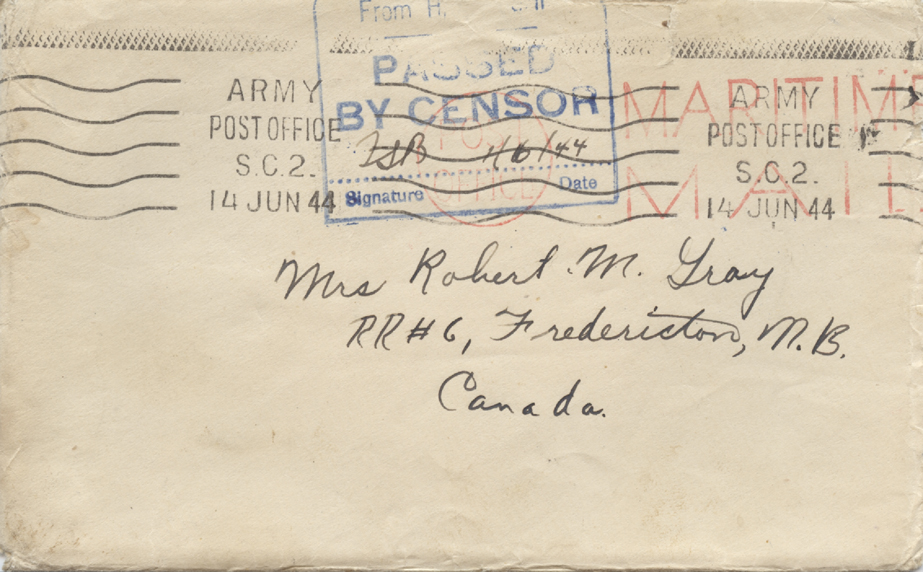 From H.
PASSED
BY CENSOR
11/6/44
Signature Date
ARMY
POST OFFICE
S.C.2.
14 JUN 44
POST
OFFICE
MARITIME
MAIL
ARMY
POST OFFICE
S.C.2.
14 JUN 44
Mrs Robert M. Gray
RR#6, Fredericton, N.B.
Canada.